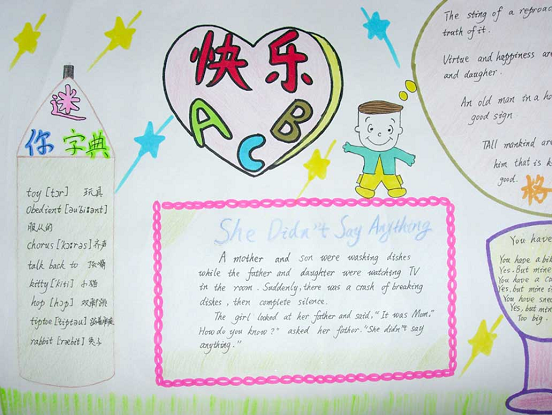 快乐
A C B
迷你字典
toy [tɔr] 玩具
Obedient
服从的
chorus 齐声
talk back to 顶嘴
kitty [kiti] 小猫
hop [hɔp]
tiptoe
rabbit [ræbit] 兔子
She Didn't Say Anything
A mother and son were washing dishes
while the father and daughter were watching TV
in the room. Suddenly, there was a crash of breaking
dishes, then complete silence.
The girl looked at her father and said, "It was Mom."
"How do you know?" asked her father. "She didn't say
anything."
The sting of a reproac
truth of it.
Virtue and happiness are
and daugher.
An old man in a ho
good sign
Tall mankind are
him that is k
good.
格
You have
You have a bik
Yes. But mine i
You have a co
Yes, but mine is
You have sne
Yes, but mine
Too big.